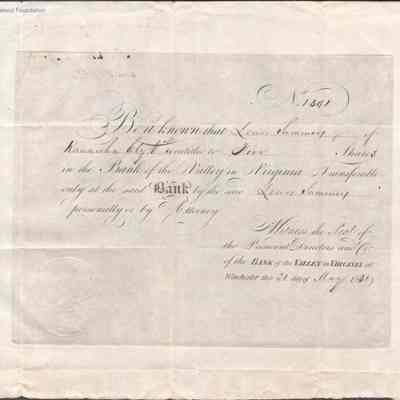 Foundation
No. 1501
Be it known that Lewis Summers of
Kanawha is entitled to Five Shares
in the Bank of the Valley in Virginia Transferable
only at the said Bank by the said Lewis Summers
personally or by Attorney
Witness the Seal of
the President Directors and Co.
of the BANK of the VALLEY in VIRGINIA at
Winchester this 21 day May